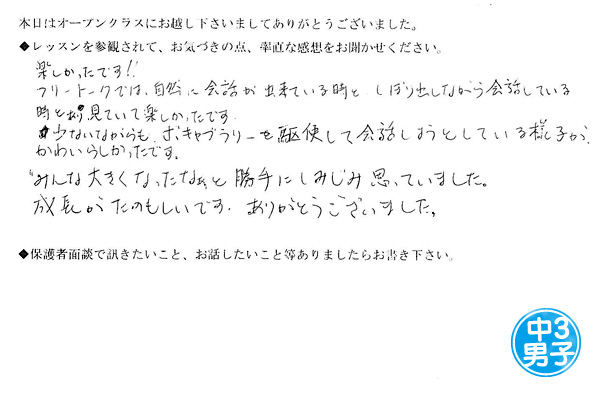 本日はオープンクラスにお越し下さいましてありがとうございました。
◆レッスンを参観されて、お気づきの点、率直な感想をお聞かせください。
楽しかったです!!
フリートークでは、自然に会話が出来ている時と、しぼり出しながら会話している
時とあり見ていて楽しかったです。
少ないながらも、ボキャブラリーを駆使して会話しようとしている様子が、
かわいらしかったです。
みんな大きくなったなぁと勝手にしみじみ思っていました。
成長がたのもしいです。ありがとうございました。
◆保護者面談で訊きたいこと、お話したいこと等ありましたらお書き下さい。
中3
男子